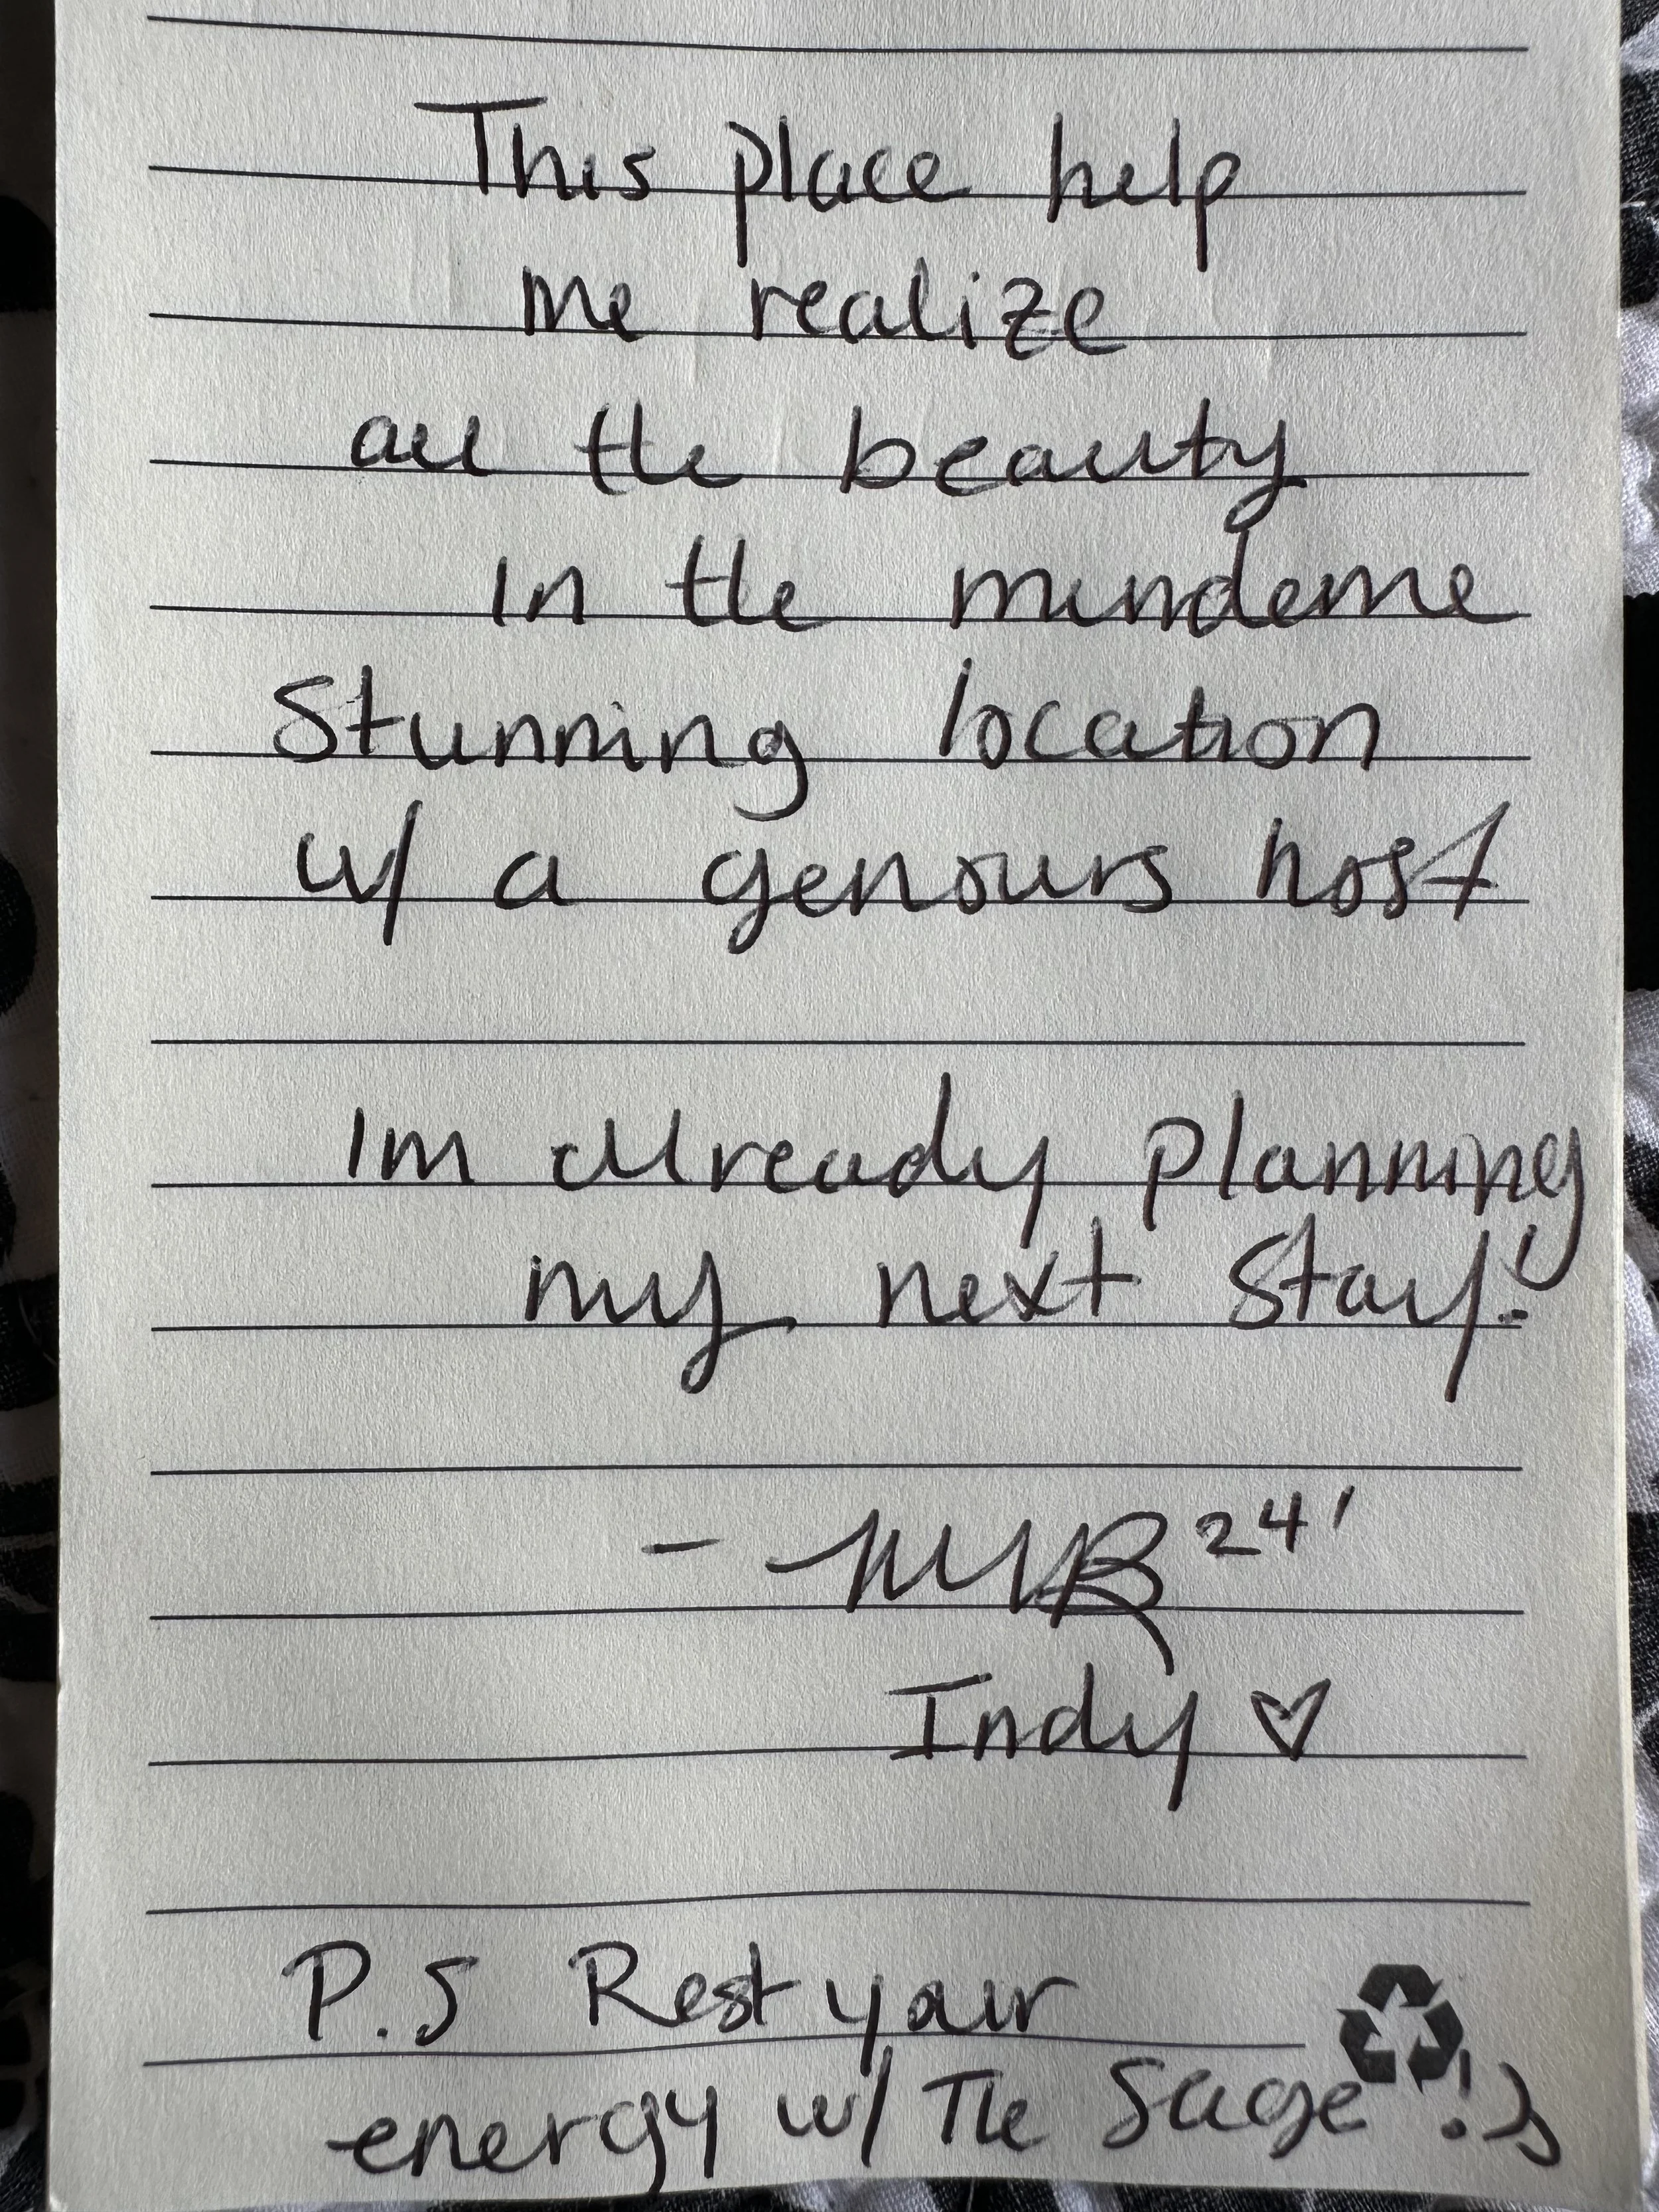 This place help
me realize
all the beauty
in the mundeme
Stunning location
w/ a genours host
Im already planning
my next stay!
- MVB 24'
Indy ♡
P.S Rest your
energy w/ The Sage !